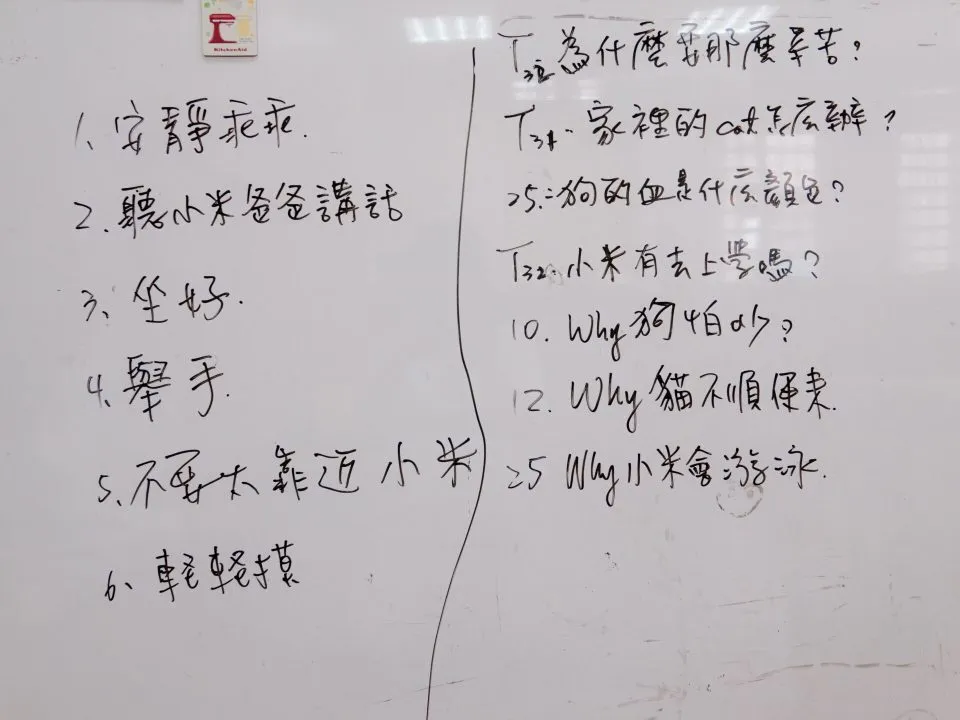 KitchenAid
1、安靜乖乖.
2.聽小米爸爸講話
3、坐好.
4、舉手.
5、不要太靠近小米
6、輕輕摸
為什麼要那麼辛苦?
T31.家裡的cat怎麼辦?
25.狗的血是什么顏色?
T32.小米有去上學嗎?
10. Why狗怕?
12. Why貓不順便來.
25 Why小米會游泳.